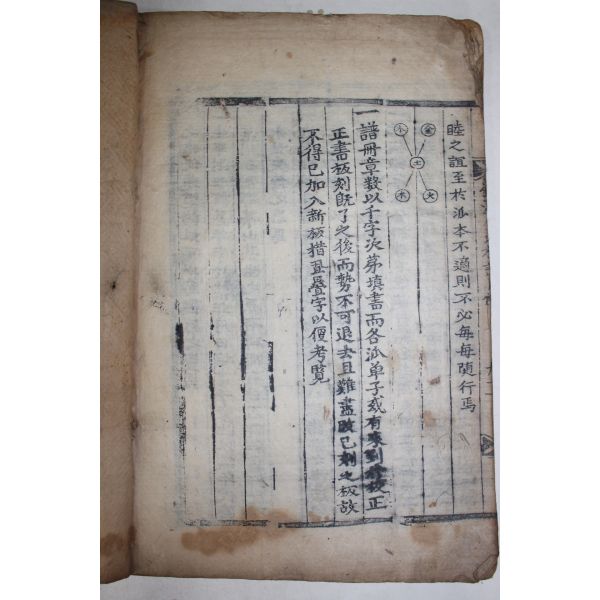 睦之誼至於派本不適則不必每每隨行焉
金 火 土 水 木
一譜冊章數以千字次苐填書而各派单子或有来到於校正
正書板刻旣了之後而勢不可退去且難盡改已刻之板故
不得已加入新板猎並疊字以便考覽